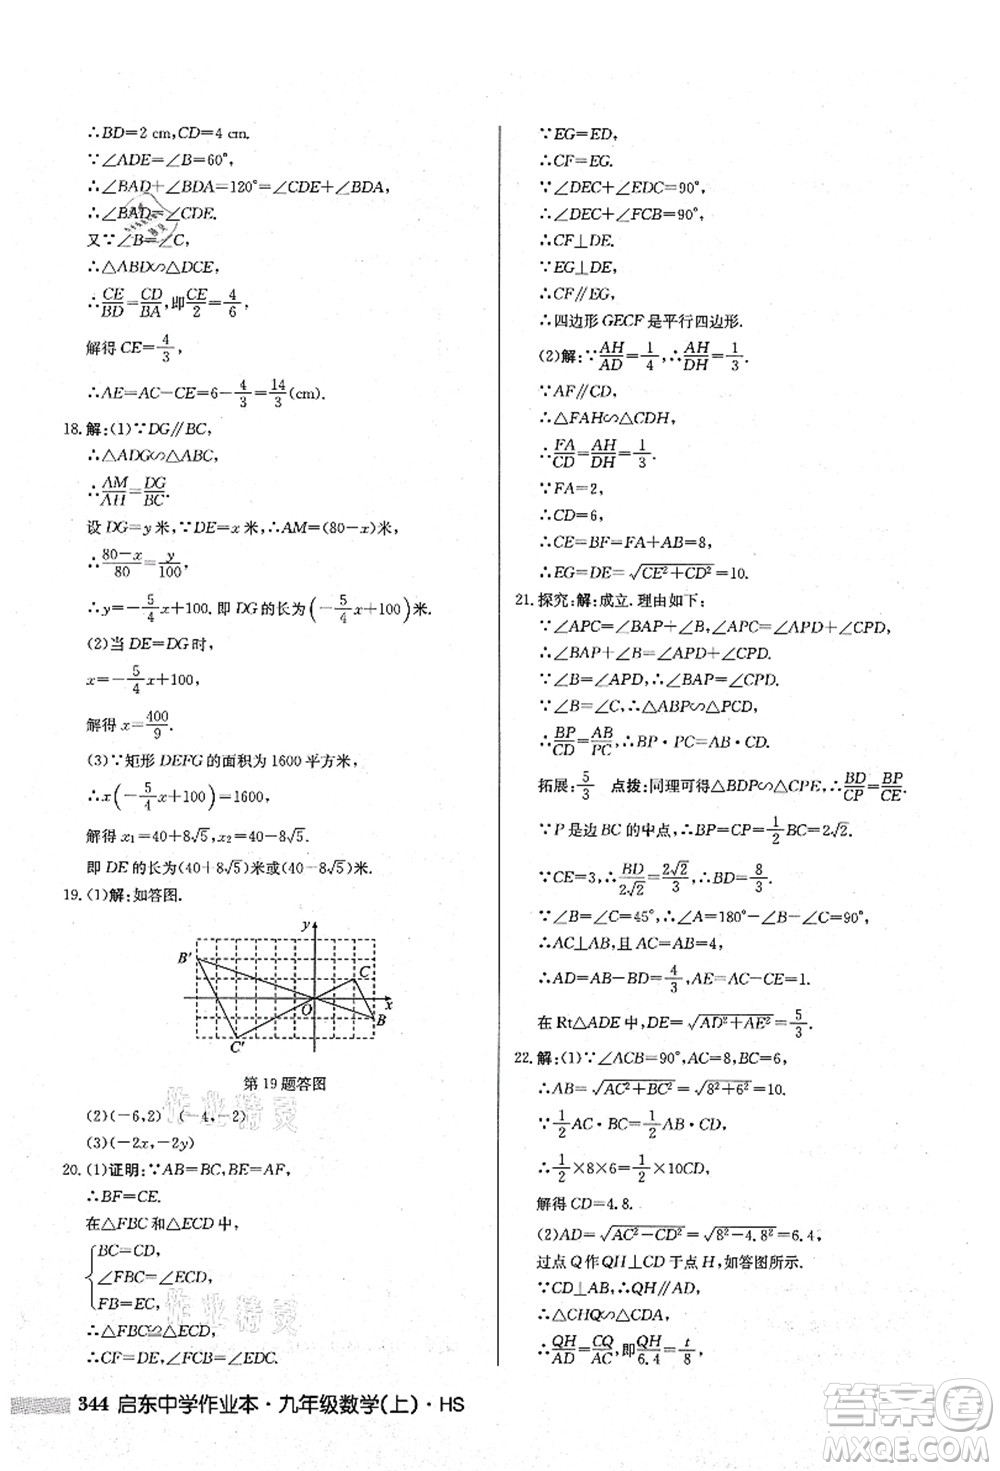 ∴BD=2 cm,CD=4 cm.
∵∠ADE=∠B=60°,
∴∠BAD+∠BDA=120°=∠CDE+∠BDA,
∴∠BAD=∠CDE.
又∵∠B=∠C,
∴△ABD∽△DCE,
∴CE/BD=CD/BA,即CE/2=4/6,
解得 CE=4/3,
∴AE=AC-CE=6-4/3=14/3(cm).
18. 解:(1)∵DG∥BC,
∴△ADG∽△ABC,
∴AM/AH=DG/BC.
设 DG=y 米,∵DE=x 米,∴AM=(80-x)米,
∴(80-x)/80=y/100,
∴y=-5/4x+100. 即 DG 的长为(-5/4x+100)米.
(2)当 DE=DG 时,
x=-5/4x+100,
解得 x=400/9.
(3)∵矩形 DEFG 的面积为 1600 平方米,
∴x(-5/4x+100)=1600,
解得 x₁=40+8√5,x₂=40-8√5.
即 DE 的长为(40+8√5)米或(40-8√5)米.
19. (1)解:如答图.
y
B′
C
O
x
B
C′
第 19 题答图
(2)(-6,2) (-4,-2)
(3)(-2x,-2y)
20. (1)证明:∵AB=BC,BE=AF,
∴BF=CE.
在△FBC 和△ECD 中,
{BC=CD,
∠FBC=∠ECD,
FB=EC,
∴△FBC≌△ECD.
∴CF=DE,∠FCB=∠EDC.
∵EG=ED,
∴CF=EG.
∵∠DEC+∠EDC=90°,
∴∠DEC+∠FCB=90°,
∴CF⊥DE.
∵EG⊥DE,
∴CF∥EG,
∴四边形 GECF 是平行四边形.
(2)解:∵AH/AD=1/4,∴AH/DH=1/3.
∵AF∥CD,
∴△FAH∽△CDH,
∴FA/CD=AH/DH=1/3.
∵FA=2,
∴CD=6,
∴CE=BF=FA+AB=8,
∴EG=DE=√(CE²+CD²)=10.
21. 探究:解:成立. 理由如下:
∵∠APC=∠BAP+∠B,∠APC=∠APD+∠CPD,
∴∠BAP+∠B=∠APD+∠CPD.
∵∠B=∠APD,∴∠BAP=∠CPD.
∵∠B=∠C,∴△ABP∽△PCD,
∴BP/CD=AB/PC,∴BP·PC=AB·CD.
拓展:5/3 点拨:同理可得△BDP∽△CPE,∴BD/CP=BP/CE.
∵P 是边 BC 的中点,∴BP=CP=1/2BC=2√2.
∵CE=3,∴BD/2√2=2√2/3,∴BD=8/3.
∵∠B=∠C=45°,∴∠A=180°-∠B-∠C=90°,
∴AC⊥AB,且 AC=AB=4,
∴AD=AB-BD=4/3,AE=AC-CE=1.
在 Rt△ADE 中,DE=√(AD²+AE²)=5/3.
22. 解:(1)∵∠ACB=90°,AC=8,BC=6,
∴AB=√(AC²+BC²)=√(8²+6²)=10.
∵1/2AC·BC=1/2AB·CD,
∴1/2×8×6=1/2×10×CD,
解得 CD=4.8.
(2)AD=√(AC²-CD²)=√(8²-4.8²)=6.4,
过点 Q 作 QH⊥CD 于点 H,如答图所示,
∵CD⊥AB,∴QH∥AD,
∴△CHQ∽△CDA,
∴QH/AD=CQ/CA,即QH/6.4=t/8,
344 启东中学作业本·九年级数学(上)·HS
作业精灵
作业精灵
答案圈
MXQE.COM